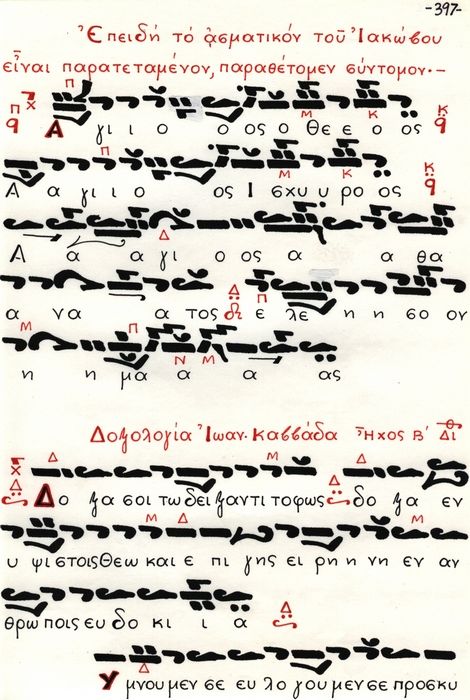 -397-
Ἐπειδή τό ᾀσματικόν τοῦ Ἰακώβου
εἶναι παρατεταμένον, παραθέτομεν σύντομον.-
Α γι ι ο ο ος ο Θε ε ο ος
Α α γι ι ο ος Ι σχυ υ ρο ος
Α α α γι ο ος α α θα
α να α τος ε λε η η σο ον
η η μα α α ας
Δοξολογία Ἰωαν. Καββάδα Ἦχος Β΄ Δι
Δο ξα σοι τω δει ξαντι το φως δο ξα εν
υ ψι στοις Θεω και ε πι γης ει ρη νη εν αν
θρω ποις ευ δο κι ι α
Υ μνου μεν σε ευ λο γου μεν σε προσκυ